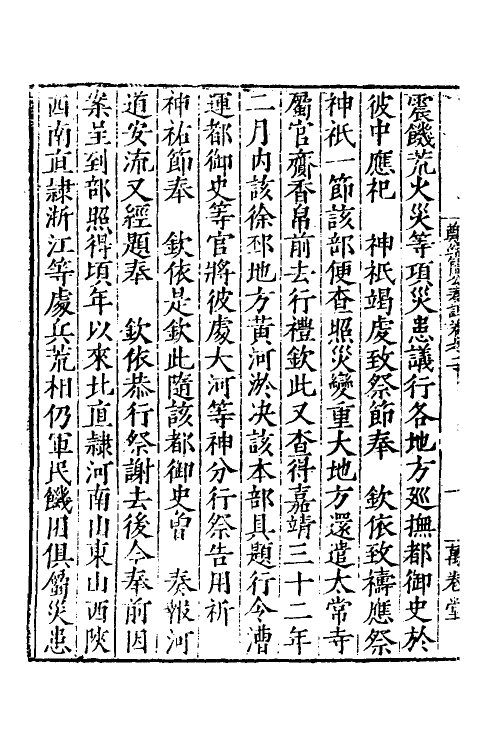 震饑荒火災等項災患議行各地方廵撫都御史於
彼中應祀　神祇竭虔致祭節奉　欽依致禱應祭
神祇一節該部便查照災變重大地方還遣太常寺
屬官齎香帛前去行禮欽此又查得嘉靖三十二年
二月内該徐邳地方黃河淤决該本部具題行令漕
運都御史等官將彼處大河等神分行祭告用祈
神祐節奉　欽依是欽此隨該都御史曾　奏報河
道安流又經題奉　欽依恭行祭謝去後今奉前因
案呈到部照得頃年以來北直隷河南山東山西陜
西南直隷浙江等處兵荒相仍軍民饑困俱屬災患
一
萬卷堂